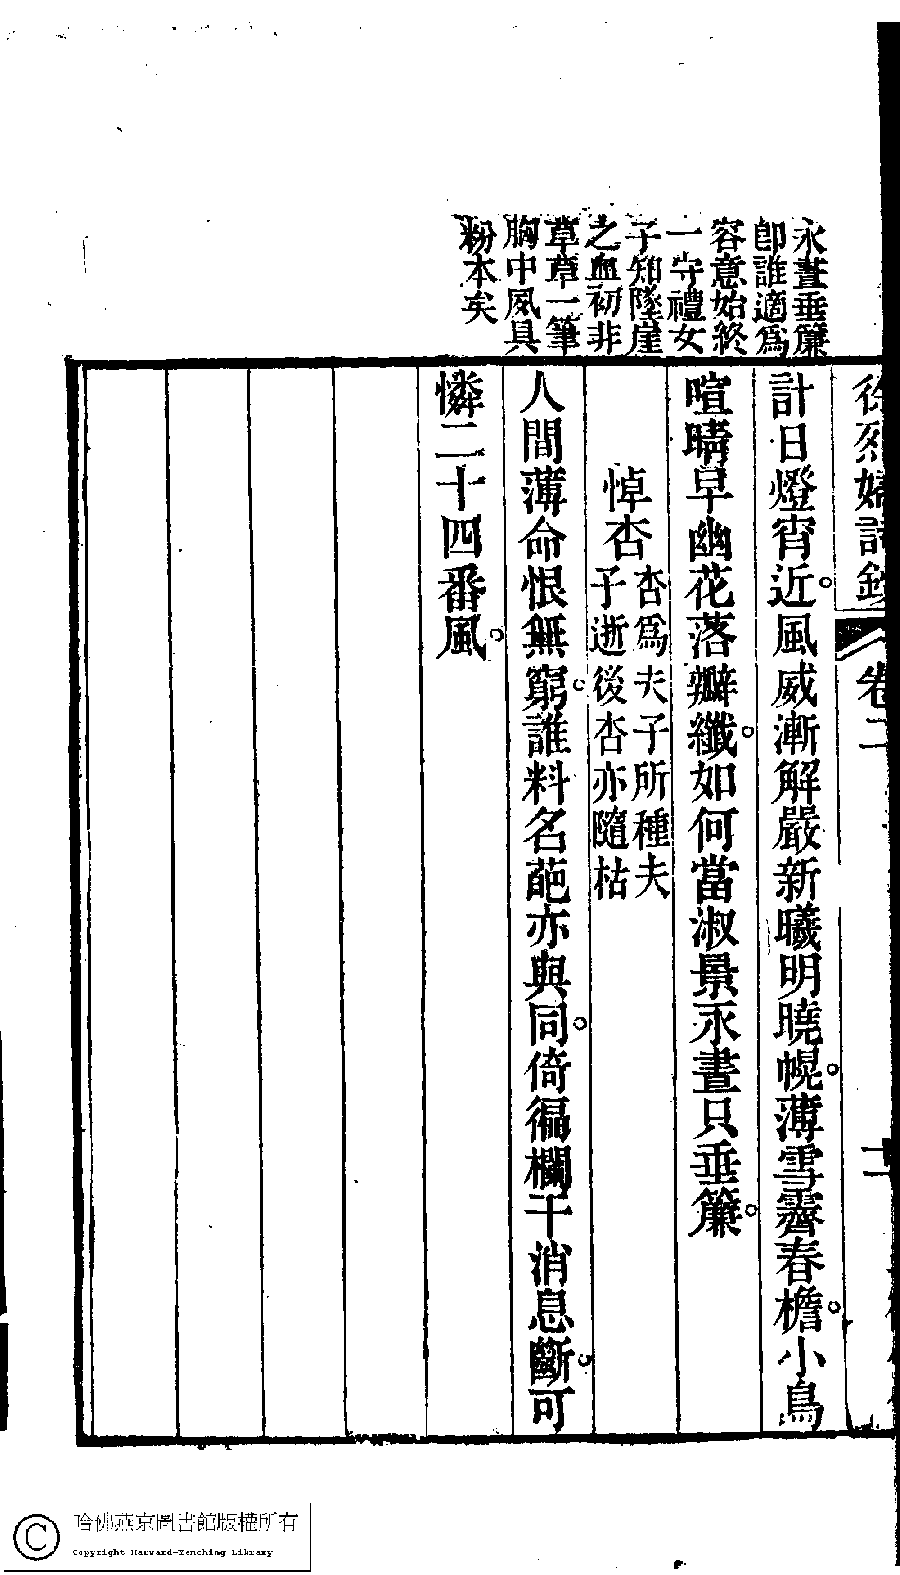 永晝垂簾
卽誰適爲
容意始終
一守禮女
子知墜崖
之血初非
草草一筆
胸中夙具
粉本矣
徐烈婦詩鈔
卷二
二
計日燈宵近風威漸解嚴新曦明曉幌薄雪霽春檐小鳥
喧晴早幽花落瓣纖如何當淑景永晝只垂簾
悼杏
杏爲夫子所種夫
子逝後杏亦隨枯
人間薄命恨無窮誰料名葩亦與同倚徧欄干消息斷可
憐二十四番風
哈佛燕京圖書館版權所有
Copyright Harvard-Yenching Library